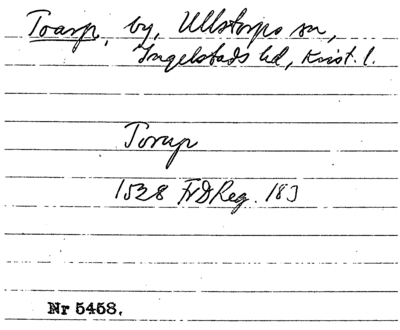 Toarp, by, Ullstorps sn,
Ingelstads hd, Krist. l.
Torup
1528 FrDReg. 183
Nr 5458.